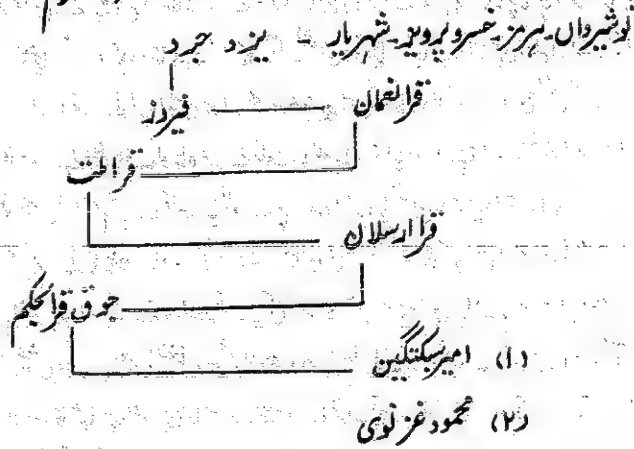 نوشیرواں۔ ہرمز۔ خسرو پرویز۔ شہریار - یزد جرد
قرانعمان فیروز
قراطت
قرا ارسلان
جوق قرابحکم
(۱) امیر سبکتگین
(۲) محمود غزنوی